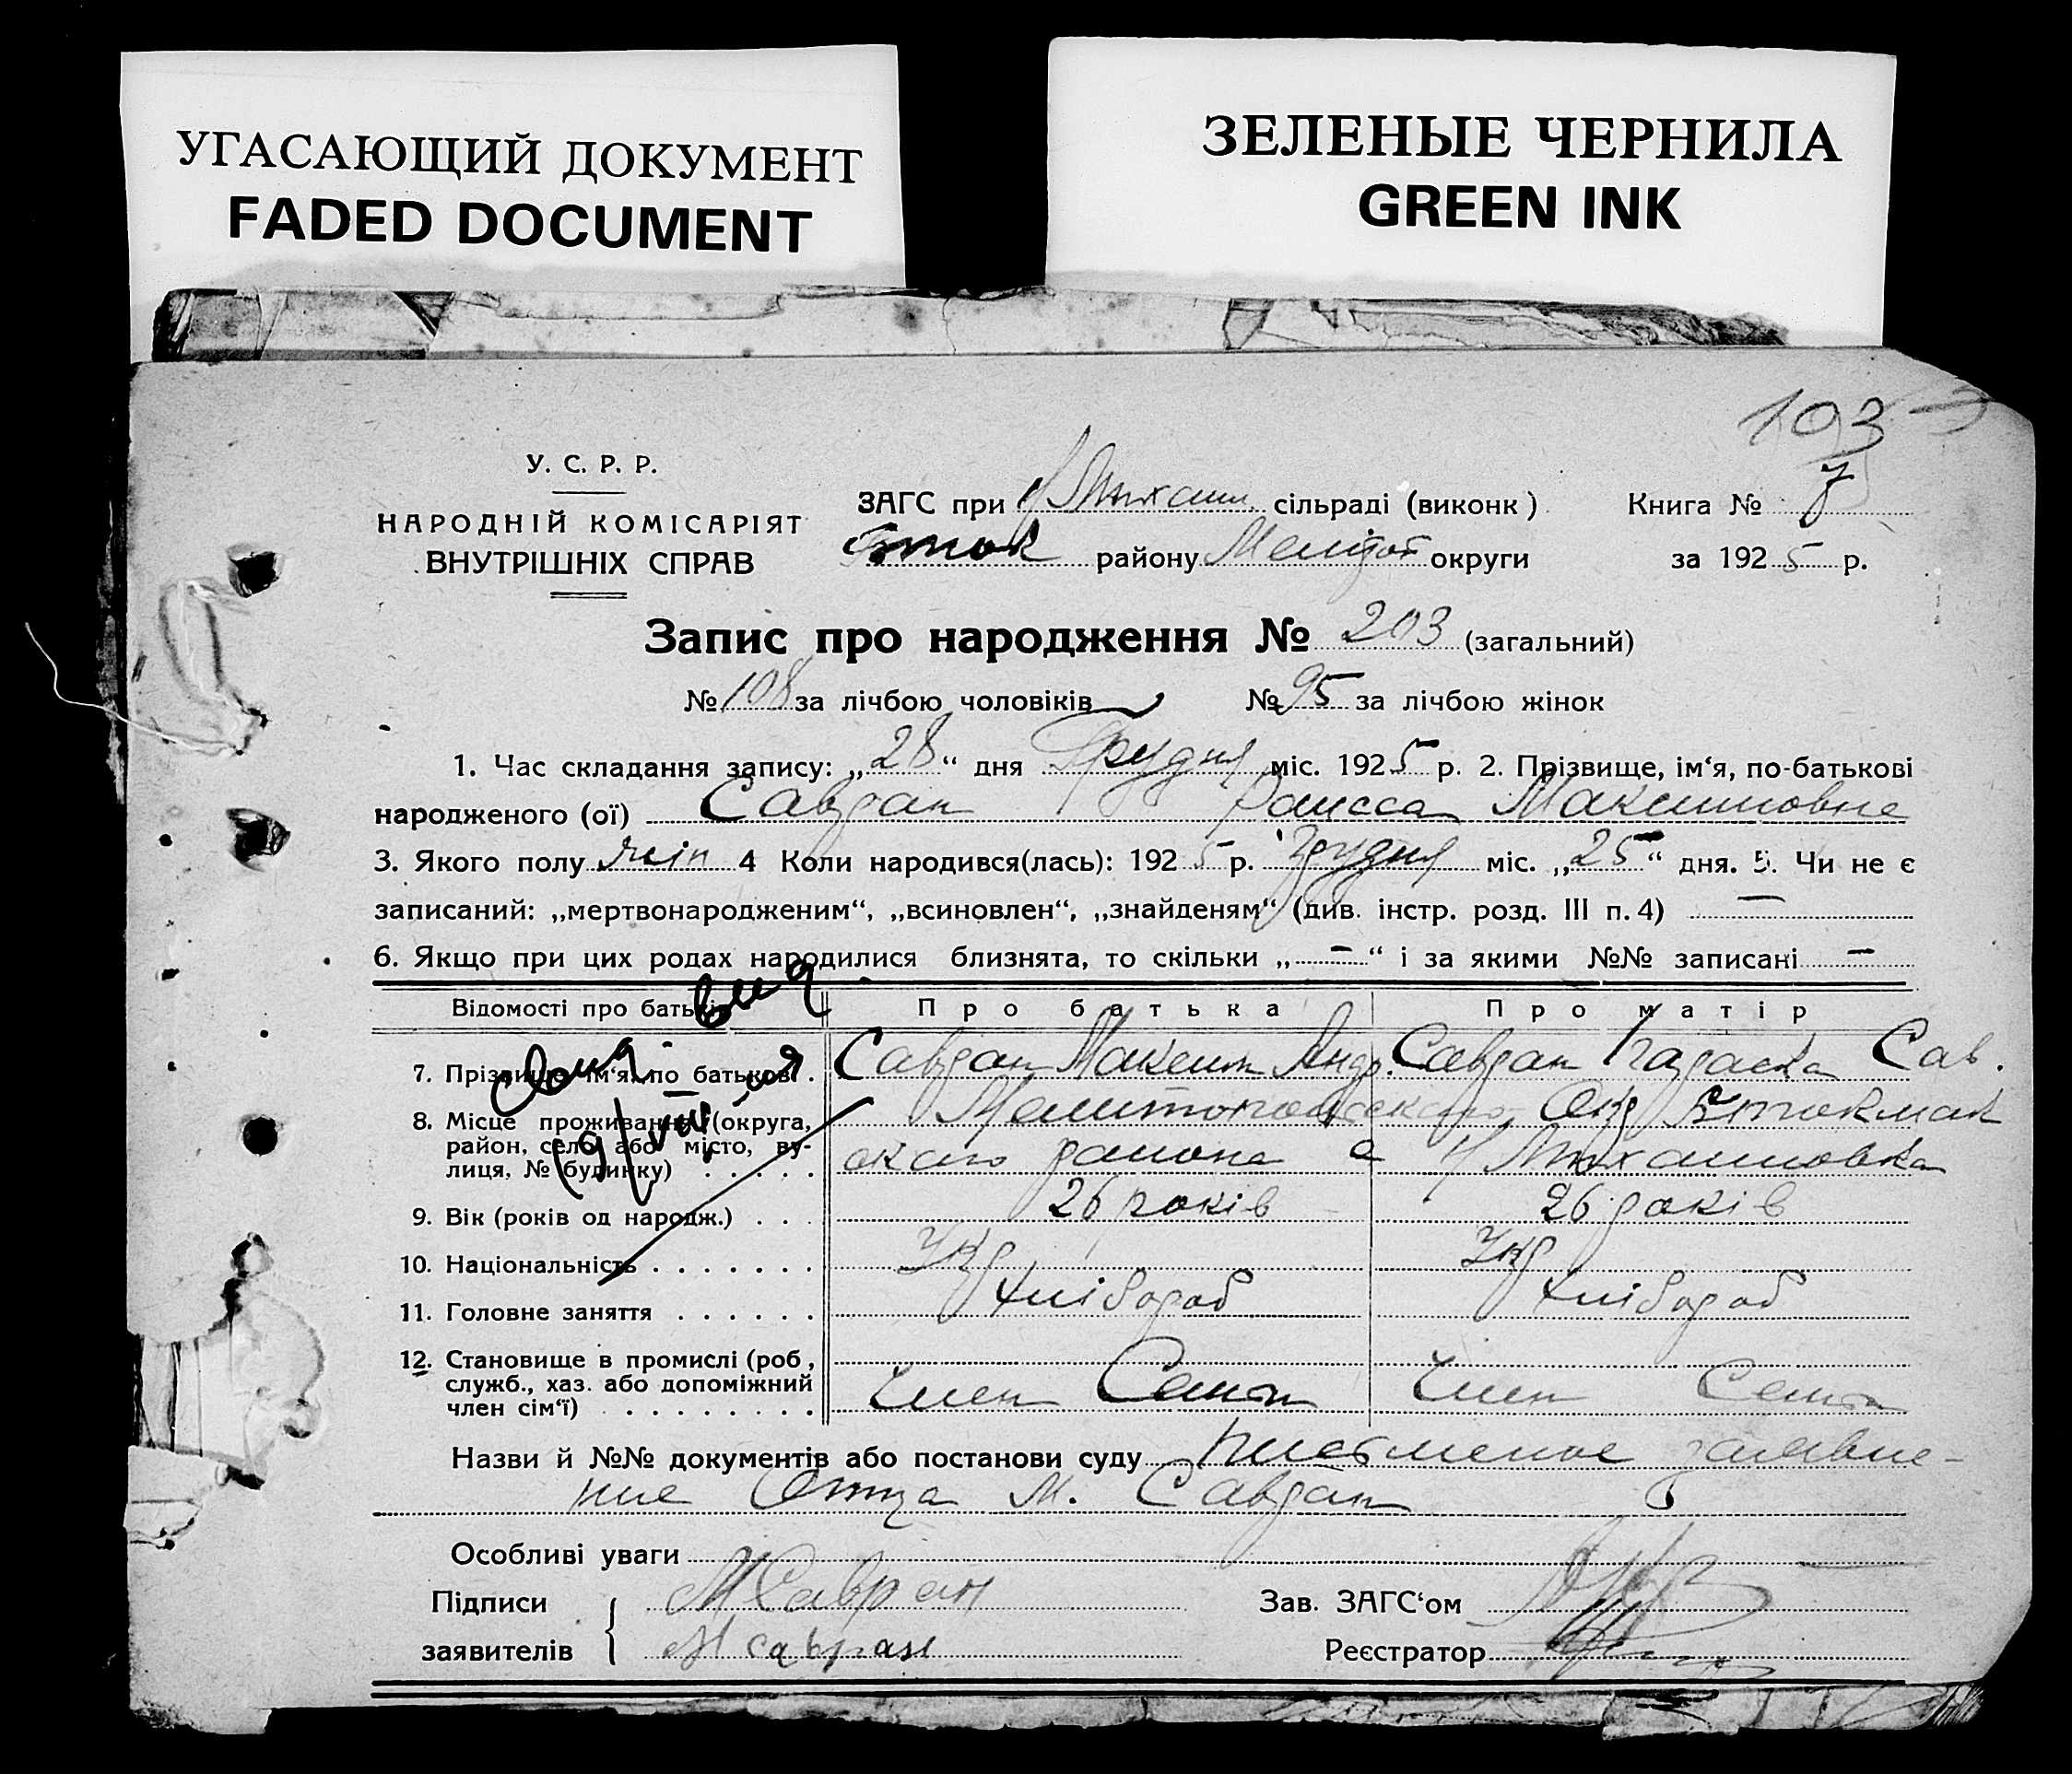 УГАСАЮЩИЙ ДОКУМЕНТ
FADED DOCUMENT
ЗЕЛЕНЫЕ ЧЕРНИЛА
GREEN INK
193
У. С. Р. Р.
НАРОДНІЙ КОМІСАРІЯТ
ВНУТРІШНІХ СПРАВ
ЗАГС при Н Михайл. сільраді (виконк)
Бток району Меліт округи
Книга № 7
за 1925 р.
Запис про народження № 203 (загальний)
№ 108 за лічбою чоловіків № 95 за лічбою жінок
1. Час складання запису: „28“ дня Грудня міс. 1925 р. 2. Прізвище, ім‘я, по-батькові
народженого (ої) Савран Раисса Максимовна
3. Якого полу жін 4 Коли народився(лась): 1925 р. Грудня міс. „25“ дня. 5. Чи не є
записаний: „мертвонародженим“, „всиновлен“, „знайденям“ (див. інстр. розд. III п. 4) —
6. Якщо при цих родах народилися близнята, то скільки „—“ і за якими №№ записані —
Відомості про батьків Про батька Про матір
7. Прізвище, ім‘я, по батькові . Савран Максим Андр. Савран Параска Сав.
8. Місце проживання (округа, район, село або місто, вулиця, № будинку) . . . . . Мелитопольского Окр Бтокмак
ского района с Н Михайловка
9. Вік (років од народж.) . . . 26 років 26 років
10. Національність . . . . . . . Укр Укр
11. Головне заняття . . . . . . Хлібороб Хлібороб
12. Становище в промислі (роб,
служб., хаз. або допоміжний
член сім‘ї) . . . . . . . . . Член Семьи Член Семьи
Назви й №№ документів або постанови суду письменое заявле-
ние Отца М. Савран
Особливі уваги
Підписи МСавран Зав. ЗАГС‘ом
заявителів М савран Реєстратор